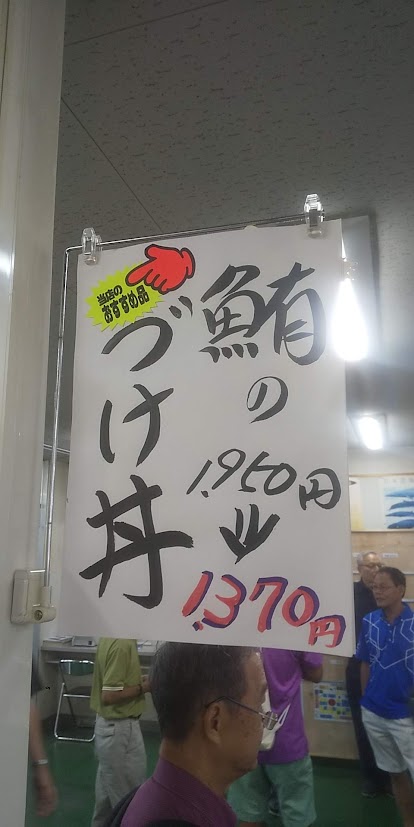 鮪の
づけ丼
当店の
おすすめ品
1,950円
⇓
1,370円